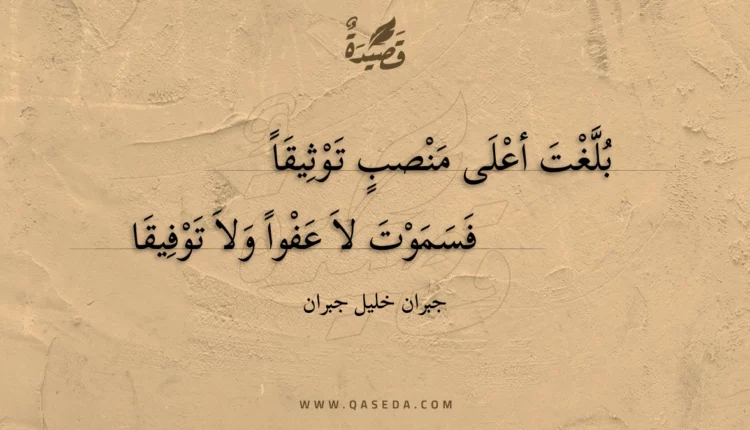 قَصِيدَةٌ
بُلَّغْتَ أعْلَى مَنْصبٍ تَوْثِيقَاً
فَسَمَوْتَ لاَ عَفْواً وَلاَ تَوْفِيقَا
جبران خليل جبران
WWW.QASEDA.COM